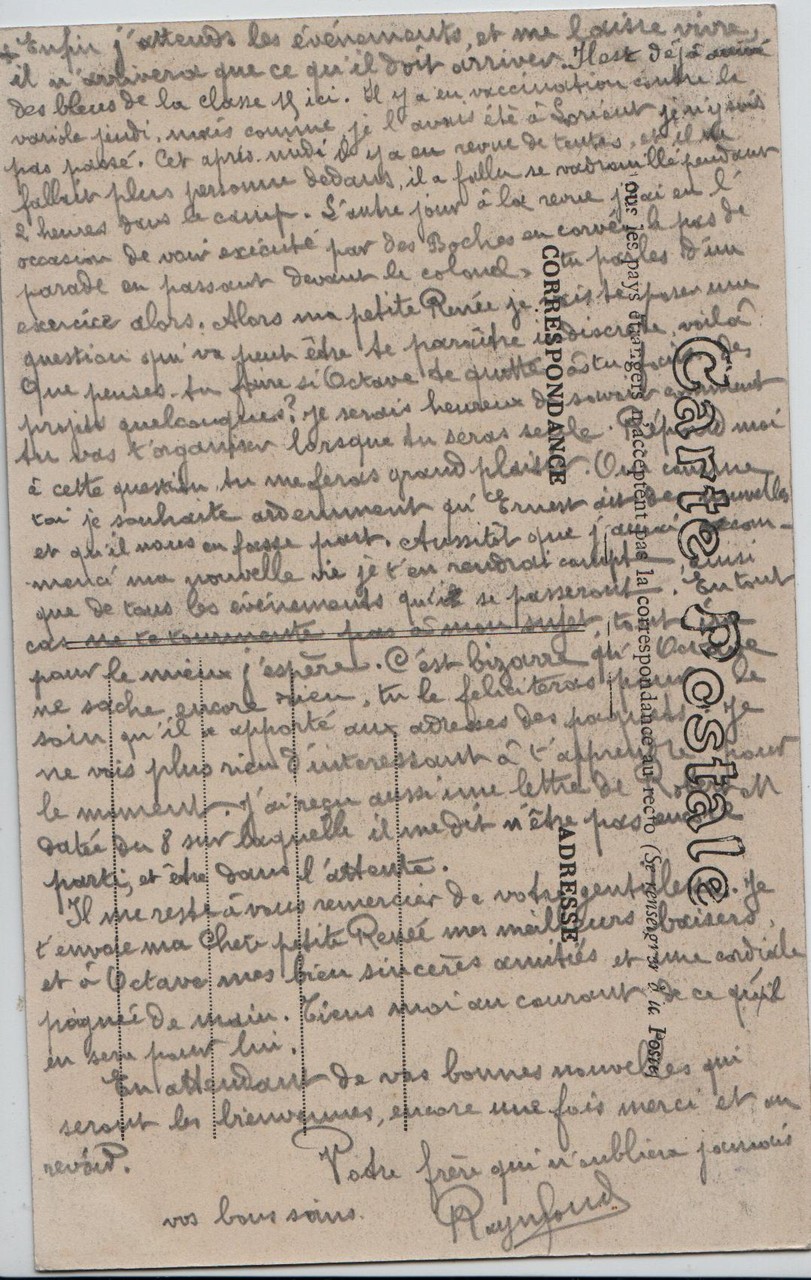 Enfin j'attends les événements, et me laisse vivre,
il n'arrivera que ce qu'il doit arriver. Il est déjà arrivé
des bleus de la classe 15 ici. Il y a eu vaccination contre la
variole jeudi, mais comme je l'avais été à Lorient je n'y suis
pas passé. Cet après-midi il y a eu revue de tentes, et il ne
fallait plus personne dedans, il a fallu se vadrouillé pendant
2 heures dans le camp. L'autre jour à la revue j'ai eu l'
occasion de voir exécuté par des Boches en corvée le pas de
parade en passant devant le colonel, tu parles d'un
exercice alors. Alors ma petite Renée je vais te poser une
question qui va peut être te paraître indiscrète, voilà
Que penses-tu faire si Octave te quitte, as tu fait des
projets quelconques? je serais heureux de savoir comment
tu vas t'organiser lorsque tu seras seule. Répond moi
à cette question, tu me feras grand plaisir. Oui comme
toi je souhaite ardemment qu'Ernest ait de nouvelles
et qu'il nous en fasse part. Aussitôt que j'aurai recom-
mencé ma nouvelle vie je t'en rendrai compte ainsi
que de tous les événements qui se passeront. En tout
cas ne te tourmente pas à mon sujet, tout
pour le mieux j'espère. C'est bizarre qu'Octave
ne sache encore rien, tu le féliciteras pour le
soin qu'il a apporté aux adresses des paquets. Je
ne vois plus rien d'interessant à t'apprendre pour
le moment. J'ai reçu aussi une lettre de Robert M
datée du 8 sur laquelle il me dit n'être pas encore
parti, et être dans l'attente.
Il me reste à vous remercier de votre gentillesse. Je
t'envoie ma chère petite Renée mes meilleurs baisers,
et à Octave mes bien sincères amitiés et une cordiale
poignée de main. Tiens moi au courant de ce qu'il
en sera pour lui.
En attendant de vos bonnes nouvelles qui
seront les bienvenues, encore une fois merci et au
revoir.
Votre frère qui n'oubliera jamais
vos bons soins.
Raymond
Carte Postale
Tous les pays étrangers n'acceptent pas la correspondance au recto (Se renseigner à la Poste)
CORRESPONDANCE
ADRESSE